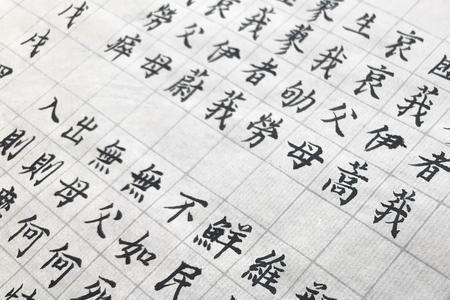 者莪
匪莪伊蒿
哀哀父母
生我劬勞
蓼蓼者莪
莪伊蔚
哀父母
勞瘁
戊戌
維
鮮民
不如死
無父何
無母何恃
出則
入則靡